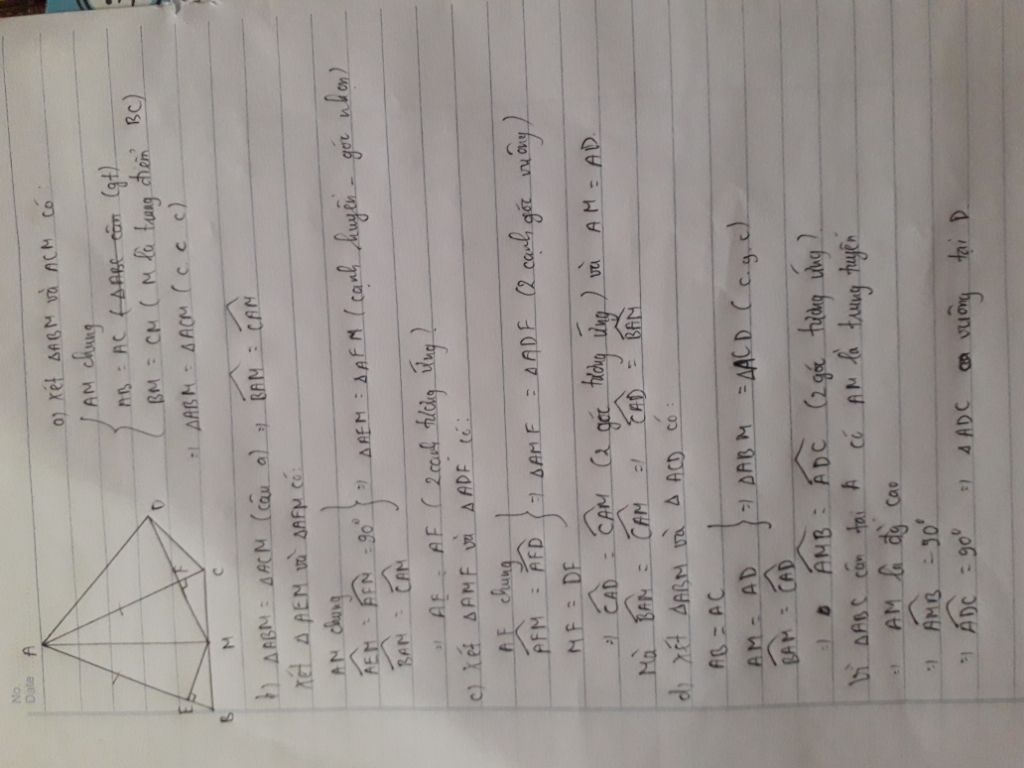 No.
Date
A
E
B
M
F
C
D
a) Xét ΔABM và ACM có:
AM chung
AB = AC (gt)
BM = CM ( M là trung điểm BC)
=> ΔABM = ΔACM ( c c c )
b) ΔABM = ΔACM (câu a) => \widehat{BAM} = \widehat{CAM}
Xét ΔAEM và ΔAFM có:
AM chung
\widehat{AEM} = \widehat{AFM} = 90° } => ΔAEM = ΔAFM (cạnh huyền - góc nhọn)
\widehat{BAM} = \widehat{CAM}
=> AE = AF ( 2 cạnh tương ứng)
c) Xét ΔAMF và ΔADF có:
AF chung
\widehat{AFM} = \widehat{AFD} } => ΔAMF = ΔADF (2 cạnh góc vuông)
MF = DF
=> \widehat{CAD} = \widehat{CAM} (2 góc tương ứng) và AM = AD
Mà \widehat{BAM} = \widehat{CAM} => \widehat{CAD} = \widehat{BAM}
d) Xét ΔABM và ΔACD có:
AB = AC
AM = AD } => ΔABM = ΔACD ( c.g.c)
\widehat{BAM} = \widehat{CAD}
=> \widehat{AMB} = \widehat{ADC} (2 góc tương ứng)
Vì ΔABC cân tại A có AM là trung tuyến
=> AM là đg cao
=> \widehat{AMB} = 90°
=> \widehat{ADC} = 90° => ΔADC vuông tại D